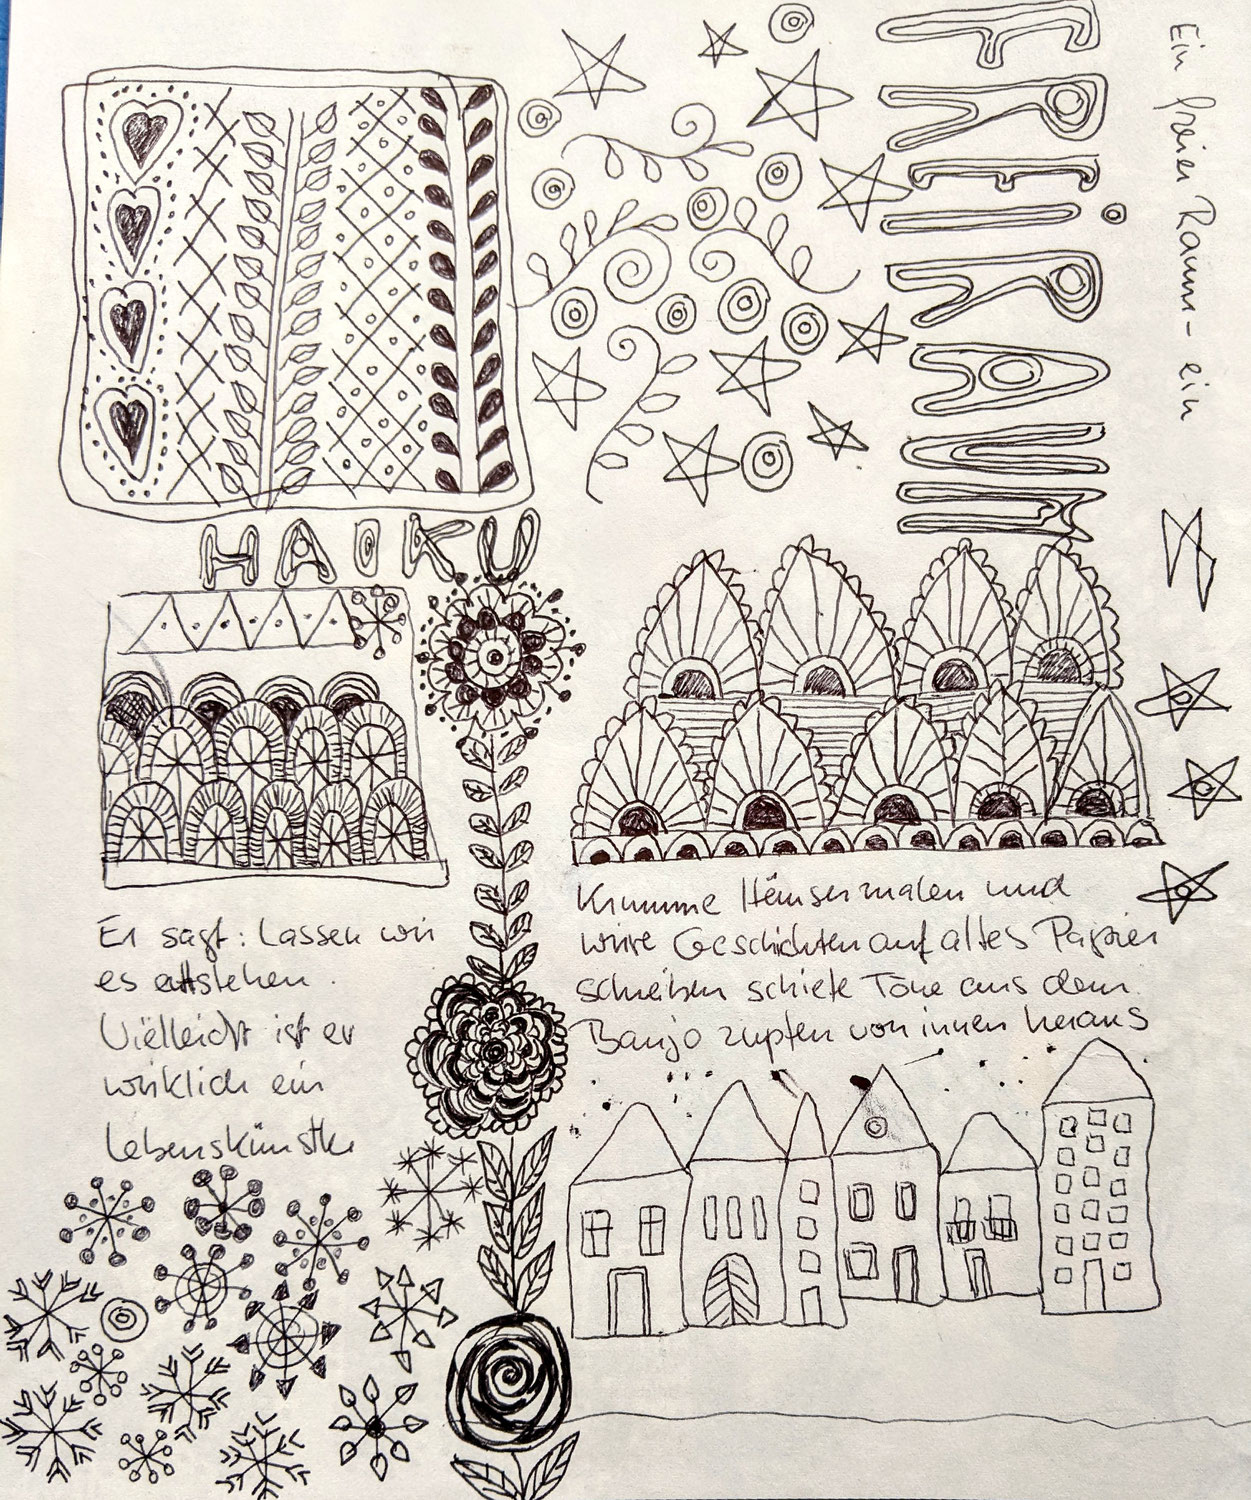 FREIRAUM
Ein freier Raum - ein
HAIKU
Er sagt: Lassen wir
es entstehen.
Vielleicht ist er
wirklich ein
Lebenskünstler
Krumme Häuser malen und
wirre Geschichten auf altes Papier
schreiben schiefe Töne aus dem
Banjo zupfen von innen heraus